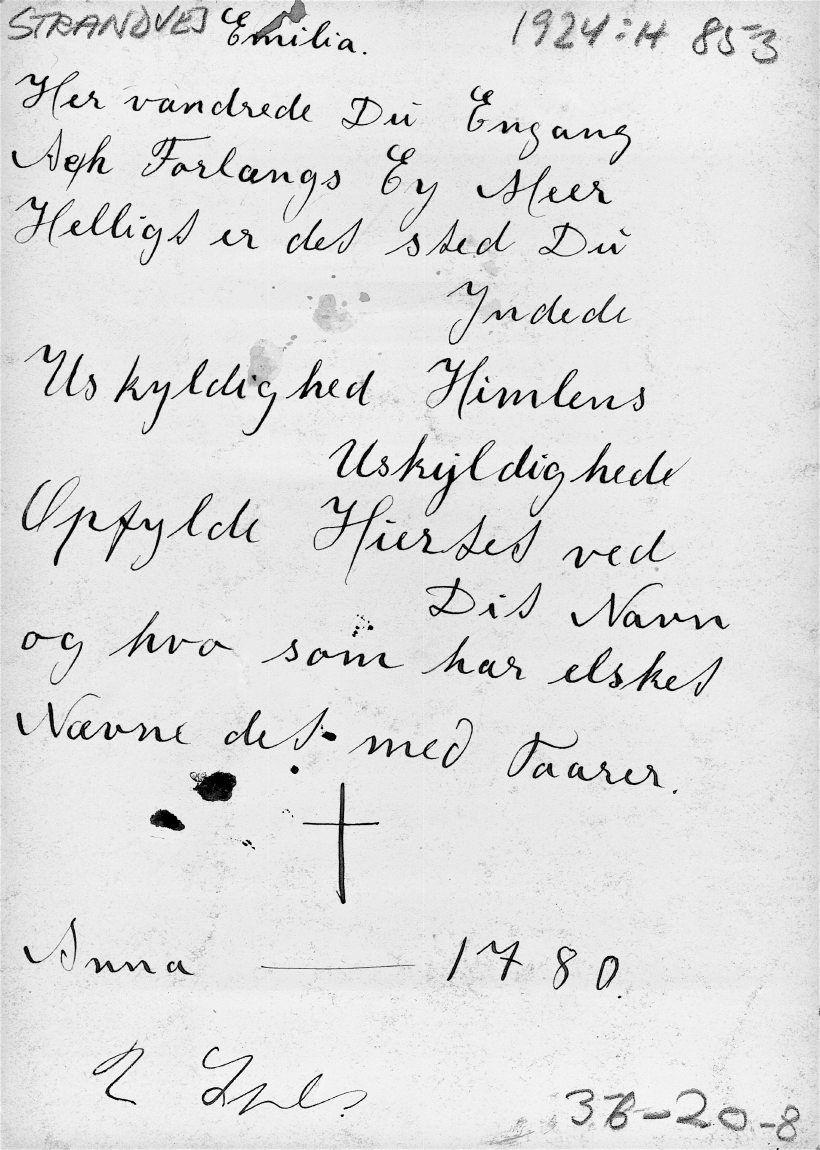 STRANDVEJ Emilia. 1924:H 85-3
Her vandrede Du Engang
Ach Forlængs Ey Meer
Helligt er det sted Du
Yndede
Uskyldighed Himlens
Uskyldighede
Opfylde Hiertet ved
Dit Navn
og hvo som har elsket
Nævne det med Taarer.
Anna — 1780.
36-20-8